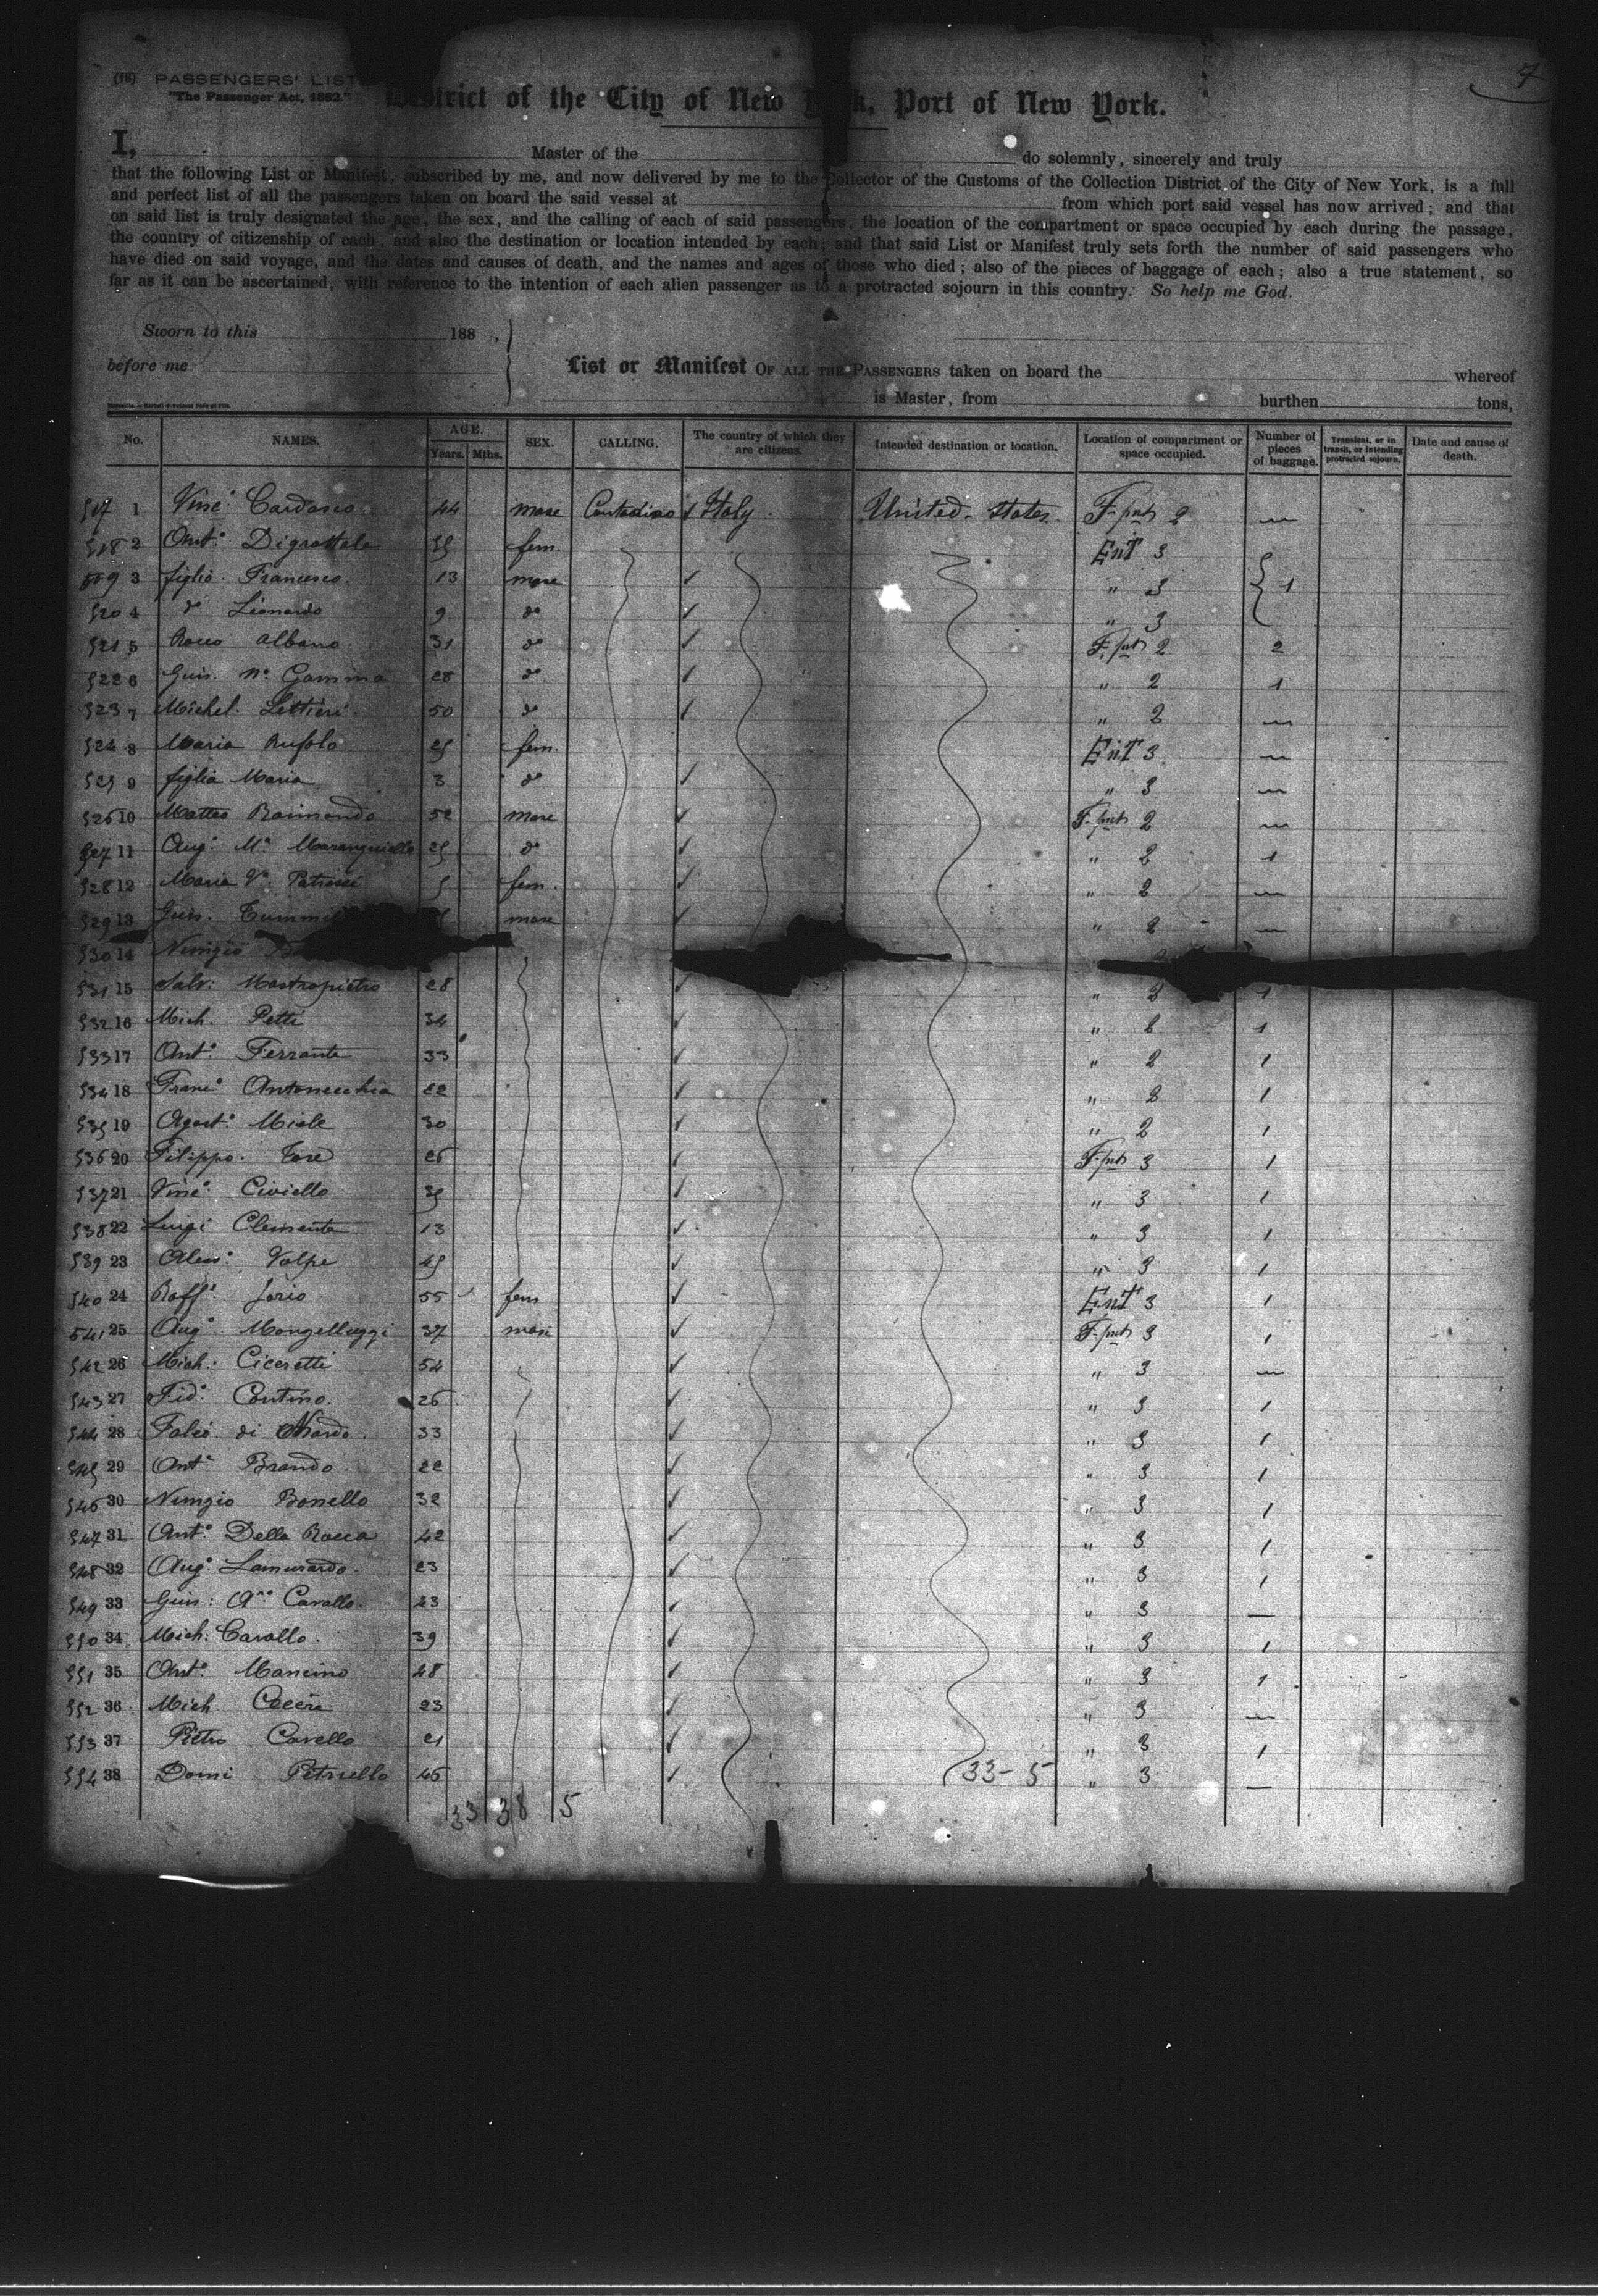 7
(16) PASSENGERS' LIST
"The Passenger Act, 1882."
District of the City of New York, Port of New York.
I, Master of the do solemnly, sincerely and truly
that the following List or Manifest, subscribed by me, and now delivered by me to the Collector of the Customs of the Collection District of the City of New York, is a full
and perfect list of all the passengers taken on board the said vessel at from which port said vessel has now arrived; and that
on said list is truly designated the age, the sex, and the calling of each of said passengers, the location of the compartment or space occupied by each during the passage,
the country of citizenship of each, and also the destination or location intended by each; and that said List or Manifest truly sets forth the number of said passengers who
have died on said voyage, and the dates and causes of death, and the names and ages of those who died; also of the pieces of baggage of each; also a true statement, so
far as it can be ascertained, with reference to the intention of each alien passenger as to a protracted sojourn in this country. So help me God.
Sworn to this 188 ,
before me
List or Manifest OF ALL THE PASSENGERS taken on board the whereof
is Master, from burthen tons,
No. NAMES. AGE. Years. Mths. SEX. CALLING. The country of which they are citizens. Intended destination or location. Location of compartment or space occupied. Number of pieces of baggage. Transient, or in transit, or intending protracted sojourn. Date and cause of death.
517 1 Vinc° Cardasco 44 masc Contadino Italy United States 2
518 2 Ant° Digrottola 35 fem. Ent 3
519 3 figlio Francesco 13 masc " 3 1
520 4 d° Leonardo 9 d° " 3
521 5 Rocco Albano 31 d° 2 2
522 6 Guis. Gamma 28 d° " 2 1
523 7 Michel. Lettieri 50 d° " 2
524 8 Maria Rufolo 25 fem. Ent 3
525 9 figlia Maria 3 d° " 3
526 10 Matteo Raimondo 52 masc 2
527 11 Ang° M° 25 d° " 2 1
528 12 Maria V° 5 fem. " 2
529 13 Guis. masc " 2
530 14 Nunzio
531 15 Salv: Mastropietro 28 " 2 1
532 16 Mich. Petti 34 " 2 1
533 17 Ant° Ferrante 33 " 2 1
534 18 Franc° Antonecchia 22 " 2 1
535 19 Agost° Miele 30 " 2 1
536 20 Filippo Tore 26 3 1
537 21 Vinc° Civiello 35 " 3 1
538 22 Luigi Clemente 13 " 3 1
539 23 Volpe 45 " 3 1
540 24 Raff° Jorio 55 fem Ent 3 1
541 25 Ang° Mongelluzzi 37 masc 3 1
542 26 Mich: Ciceretti 54 " 3
543 27 Fid° Contino 26 " 3 1
544 28 di Nardo 33 " 3 1
545 29 Ant° Brando 22 " 3 1
546 30 Nunzio Bonello 32 " 3 1
547 31 Ant° Della Rocca 42 " 3 1
548 32 Ang° 23 " 3 1
549 33 Guis: Cavallo 23 " 3
550 34 Mich: Cavallo 39 " 3 1
551 35 Ant° Mancino 48 " 3 1
552 36 Mich 23 " 3
553 37 Pietro Cavello 21 " 3 1
554 38 Domi Petruello 46 33-5 " 3
33 38 5